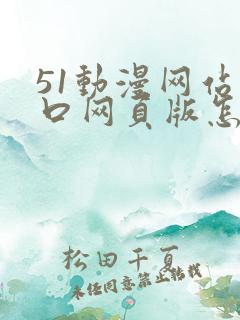 51動漫网站
口网页版怎
松田千夏
未经同意禁止转载